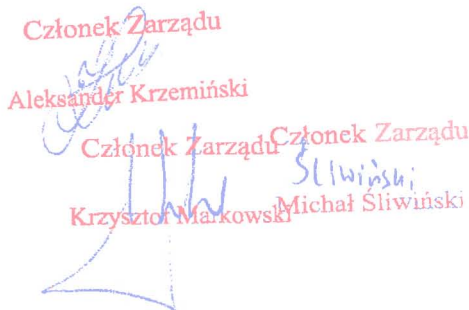 Członek Zarządu
Aleksander Krzemiński
Członek Zarządu
Krzysztof Markowski
Członek Zarządu
Śliwiński
Michał Śliwiński